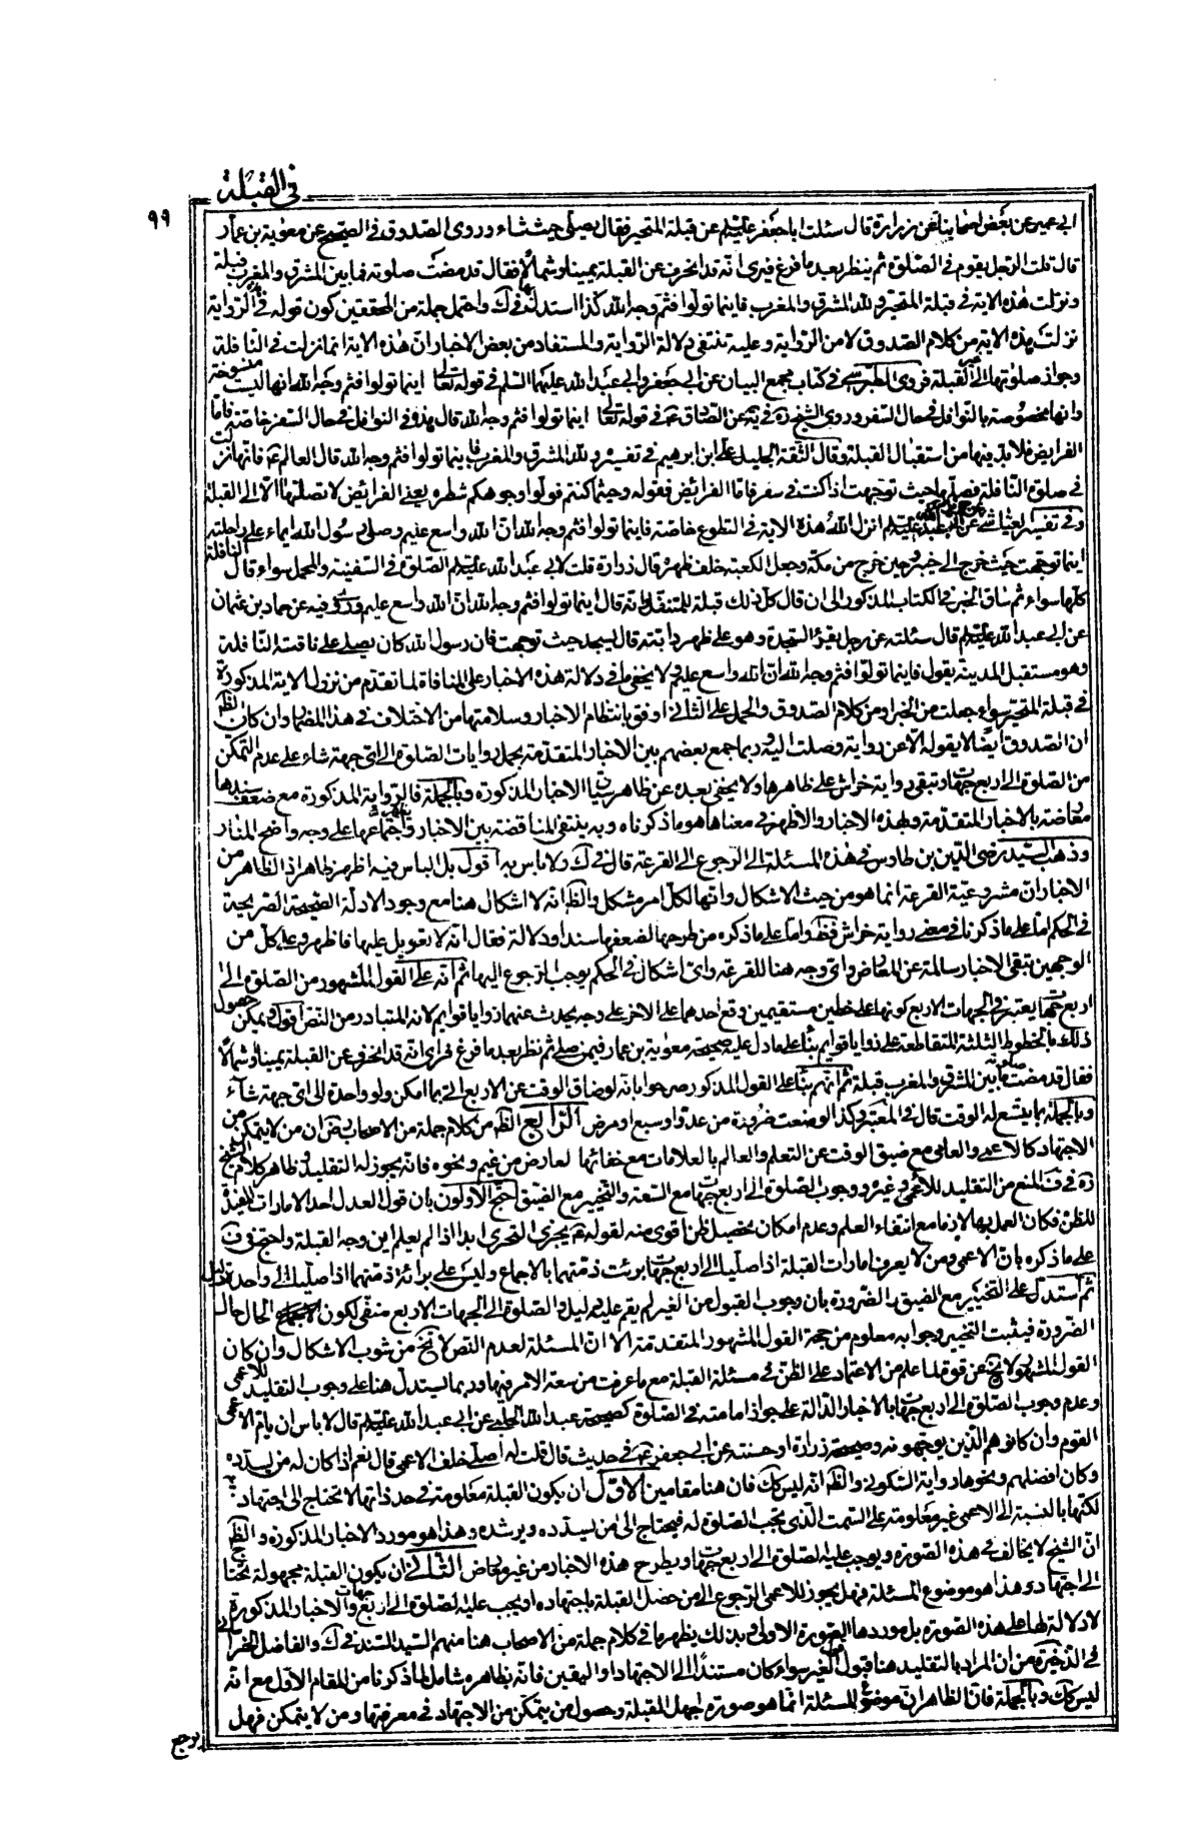 في القبلة
٩٩
ابي عمير عن بعض اصحابنا عن زرارة قال سئلت ابا جعفر عليه السلم عن قبلة المتحير فقال يصلي حيث شاء وروى الصدوق في الصحيح عن معوية بن عمار
قال قلت الرجل يقوم في الصلوة ثم ينظر بعد ما فرغ فيرى انه قد انحرف عن القبلة يمينا وشمالا فقال قد مضت صلوته فما بين المشرق والمغرب قبلة
ونزلت هذه الاية في قبلة المتحير ولله المشرق والمغرب فاينما تولوا فثم وجه الله كذا استدل في ك واحتمل جملة من المحققين كون قوله في الرواية
نزلت هذه الاية من كلام الصدوق لا من الرواية وعليه تنتفي دلالة الرواية والمستفاد من بعض الاخبار ان هذه الاية انما نزلت في النافلة
وجواز صلوتها الى غير القبلة فروى الطبرسي في كتاب مجمع البيان عن ابي جعفر وابي عبد الله عليهما السلم في قوله تعالى اينما تولوا فثم وجه الله انها ليست منسوخة
وانها مخصوصة بالنوافل في حال السفر وروى الشيخ ره في يه عن الصادق ع في قوله تعالى اينما تولوا فثم وجه الله قال هذا في النوافل في حال السفر خاصة فاما
الفرايض فلا بد فيها من استقبال القبلة وقال الثقة الجليل علي بن ابرهيم في تفسيره ولله المشرق والمغرب فاينما تولوا فثم وجه الله قال العالم ع فانها نزلت
في صلوة النافلة فصلها حيث توجهت اذا كنت في سفر فاما الفرائض فقوله وحيثما كنتم فولوا وجوهكم شطره يعني الفرائض لا تصلها الا الى القبلة
وفي تفسير العياشي عن عليه السلم انزل الله هذه الاية في التطوع خاصة فاينما تولوا فثم وجه الله ان الله واسع عليم وصلى رسول الله ايماء على راحلته
اينما توجهت حيث خرج الى خيبر وحين خرج من مكة وجعل الكعبة خلف ظهره قال زرارة قلت لابي عبد الله عليه السلم الصلوة في السفينة والمحمل سواء قال النافلة
كلها سواء ثم ساق الخبر في الكتاب المذكور الى ان قال كل ذلك قبلة للمتنفل انه قال اينما تولوا فثم وجه الله ان الله واسع عليم وروى فيه عن حماد بن عثمان
عن ابي عبد الله عليه السلم قال سئلته عن رجل يقرء السجدة وهو على ظهر دابته قال يسجد حيث توجهت فان رسول الله كان يصلي على ناقته النافلة
وهو مستقبل المدينة يقول فاينما تولوا فثم وجه الله ان الله واسع عليم ولا يخفى ما في دلالة هذه الاخبار على المنافاة لما تقدم من نزول الاية المذكورة
في قبلة المتحير سواء جعلت من الخبر او من كلام الصدوق والحمل على الثاني اوفق بانتظام الاخبار وسلامتها من الاختلاف في هذا المضمار وان كان الظ
ان الصدوق ايضا لا يقوله الا عن رواية وصلت اليه وربما جمع بعضهم بين الاخبار المتقدمة بحمل روايات الصلوة الى اي جهة شاء على عدم التمكن
من الصلوة الى اربع جهات وتبقى رواية خراش على ظاهرها ولا يخفى بعده عن ظاهر سياق الاخبار المذكورة وبالجملة فالرواية المذكورة مع ضعف سندها
معارضة بالاخبار المتقدمة وبهذه الاخبار والاظهر في معناها هو ما ذكرناه وبه ينتفي المناقضة بين الاخبار واجتماعها على وجه واضح المنار
وذهب السيد رضي الدين بن طاوس في هذه المسئلة الى الرجوع الى القرعة قال في ك ولا باس به اقول بل الباس فيه اظهر ظاهر اذ الظاهر من
الاخبار ان مشروعية القرعة انما هو من حيث الاشكال وانها لكل امر مشكل والظ انه لا اشكال هنا مع وجود الادلة الصحيحة الصريحة
في الحكم اما على ما ذكرنا في معنى رواية خراش فظ واما على ما ذكره من طرحها لضعفها سندا ودلالة فقال انه لا تعويل عليها فاظهر وعلى كل من
الوجهين تبقى الاخبار سالمة عن المعارض واي وجه هنا للقرعة واي اشكال في الحكم يوجب الرجوع اليها ثم انه على القول المشهور من الصلوة الى
اربع جهات يعتبر في الجهات الاربع كونها على خطين مستقيمين وقع احدهما على الاخر على وجه يحدث عنهما زوايا قوايم لانه المتبادر من النص اقول ويمكن حصول
ذلك بالخطوط الثلثة المتقاطعة على زوايا قوايم بناء على ما دل عليه صحيحة معوية بن عمار فيمن صلى ثم نظر بعد ما فرغ فراى انه قد انحرف عن القبلة يمينا وشمالا
فقال قد مضت صلوته ما بين المشرق والمغرب قبلة ثم انهم بناء على القول المذكور صرحوا بانه لو ضاق الوقت عن الاربع اتى بما امكن ولو واحدة الى اي جهة شاء
وبالجملة بما يتسع له الوقت قال في المعتبر وكذا لو منعت ضرورة من عدو او سبع او مرض الرابع الظ من كلام جملة من الاصحاب رض ان من لا يتمكن من
الاجتهاد كالاعمى والعامي مع ضيق الوقت عن التعلم والعالم بالعلامات مع خفائها لعارض من غيم ونحوه فانه يجوز له التقليد وظاهر كلام الشيخ
ره في ف المنع من التقليد للاعمى وغيره ووجوب الصلوة الى اربع جهات مع السعة والتخيير مع الضيق احتج الاولون بان قول العدل احد الامارات المفيدة
للظن فكان العمل بها لازما مع انتفاء العلم وعدم امكان تحصيل ظن اقوى منه لقوله ع يجزي التحري ابدا اذا لم يعلم اين وجه القبلة واحتج في ف
على ما ذكره بان الاعمى ومن لا يعرف امارات القبلة اذا صليا الى اربع جهات برئت ذمتهما بالاجماع وليس على برائة ذمتهما اذا صليا الى واحدة دليل
ثم استدل على التخيير مع الضيق والضرورة بان وجوب القبول من الغير لم يقم عليه دليل والصلوة الى الجهات الاربع منفي لكون الحال حال
الضرورة فيثبت التخيير وجوابه معلوم من حجة القول المشهور المتقدمة الا ان المسئلة لعدم النص لا تخ من شوب الاشكال وان كان
القول المشهور لا يخ عن قوة لما علم من الاعتماد على الظن في مسئلة القبلة مع ما عرفت من سعة الامر فيها وربما يستدل هنا على وجوب التقليد للاعمى
وعدم وجوب الصلوة الى اربع جهات بالاخبار الدالة على جواز امامته في الصلوة كصحيحة عبيد الله الحلبي عن ابي عبد الله عليه السلم قال لا باس ان يؤم الاعمى
القوم وان كانوا هم الذين يوجهونه وصحيحة زرارة او حسنته عن ابي جعفر ع في حديث قال قلت له اصلي خلف الاعمى قال نعم اذا كان له من يسدده
وكان افضلهم ونحوها رواية السكوني والظ انه ليس كك فان هنا مقامين الاول ان يكون القبلة معلومة في حد ذاتها لا تحتاج الى اجتهاد
لكنها بالنسبة الى الاعمى غير معلومة على السمت الذي يجب الصلوة له فيحتاج الى من يسدده ويرشده وهذا هو مورد الاخبار المذكورة والظ
ان الشيخ لا يخالف في هذه الصورة ويوجب عليه الصلوة الى اربع جهات ويطرح هذه الاخبار من غير معارض الثاني ان يكون القبلة مجهولة تحتاج
الى اجتهاد وهذا هو موضوع المسئلة فهل يجوز للاعمى الرجوع الى من حصل القبلة باجتهاده او يجب عليه الصلوة الى اربع جهات والاخبار المذكورة
لا دلالة لها على هذه الصورة بل موردها الصورة الاولى وبذلك يظهر ما في كلام جملة من الاصحاب هنا منهم السيد السند في ك والفاضل الخراساني
في الذخيرة من ان المراد بالتقليد هنا قبول قول الغير سواء كان مستندا الى الاجتهاد او اليقين فانه بظاهره شامل لما ذكرنا من المقام الاول مع انه
ليس كك وبالجملة فان الظاهر ان موضوع المسئلة انما هو صورة جهل القبلة وحصول من يتمكن من الاجتهاد في معرفتها ومن لا يتمكن فهل
يرجع